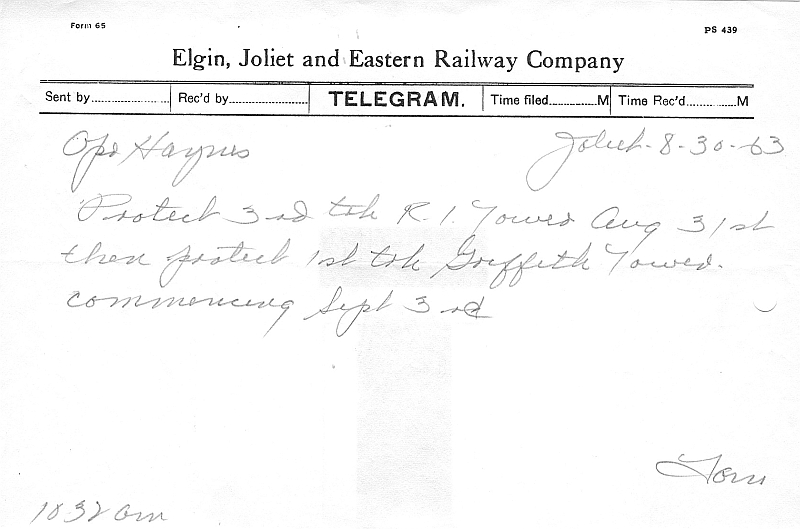 Form 65
PS 439
Elgin, Joliet and Eastern Railway Company
Sent by Rec'd by TELEGRAM. Time filed M Time Rec'd M
Opr Haynes Joliet- 8-30-63
Protect 3rd trk R.I. Tower Aug 31st
then protect 1st trk Griffith Tower.
commencing Sept 3rd
Tom
1032 am